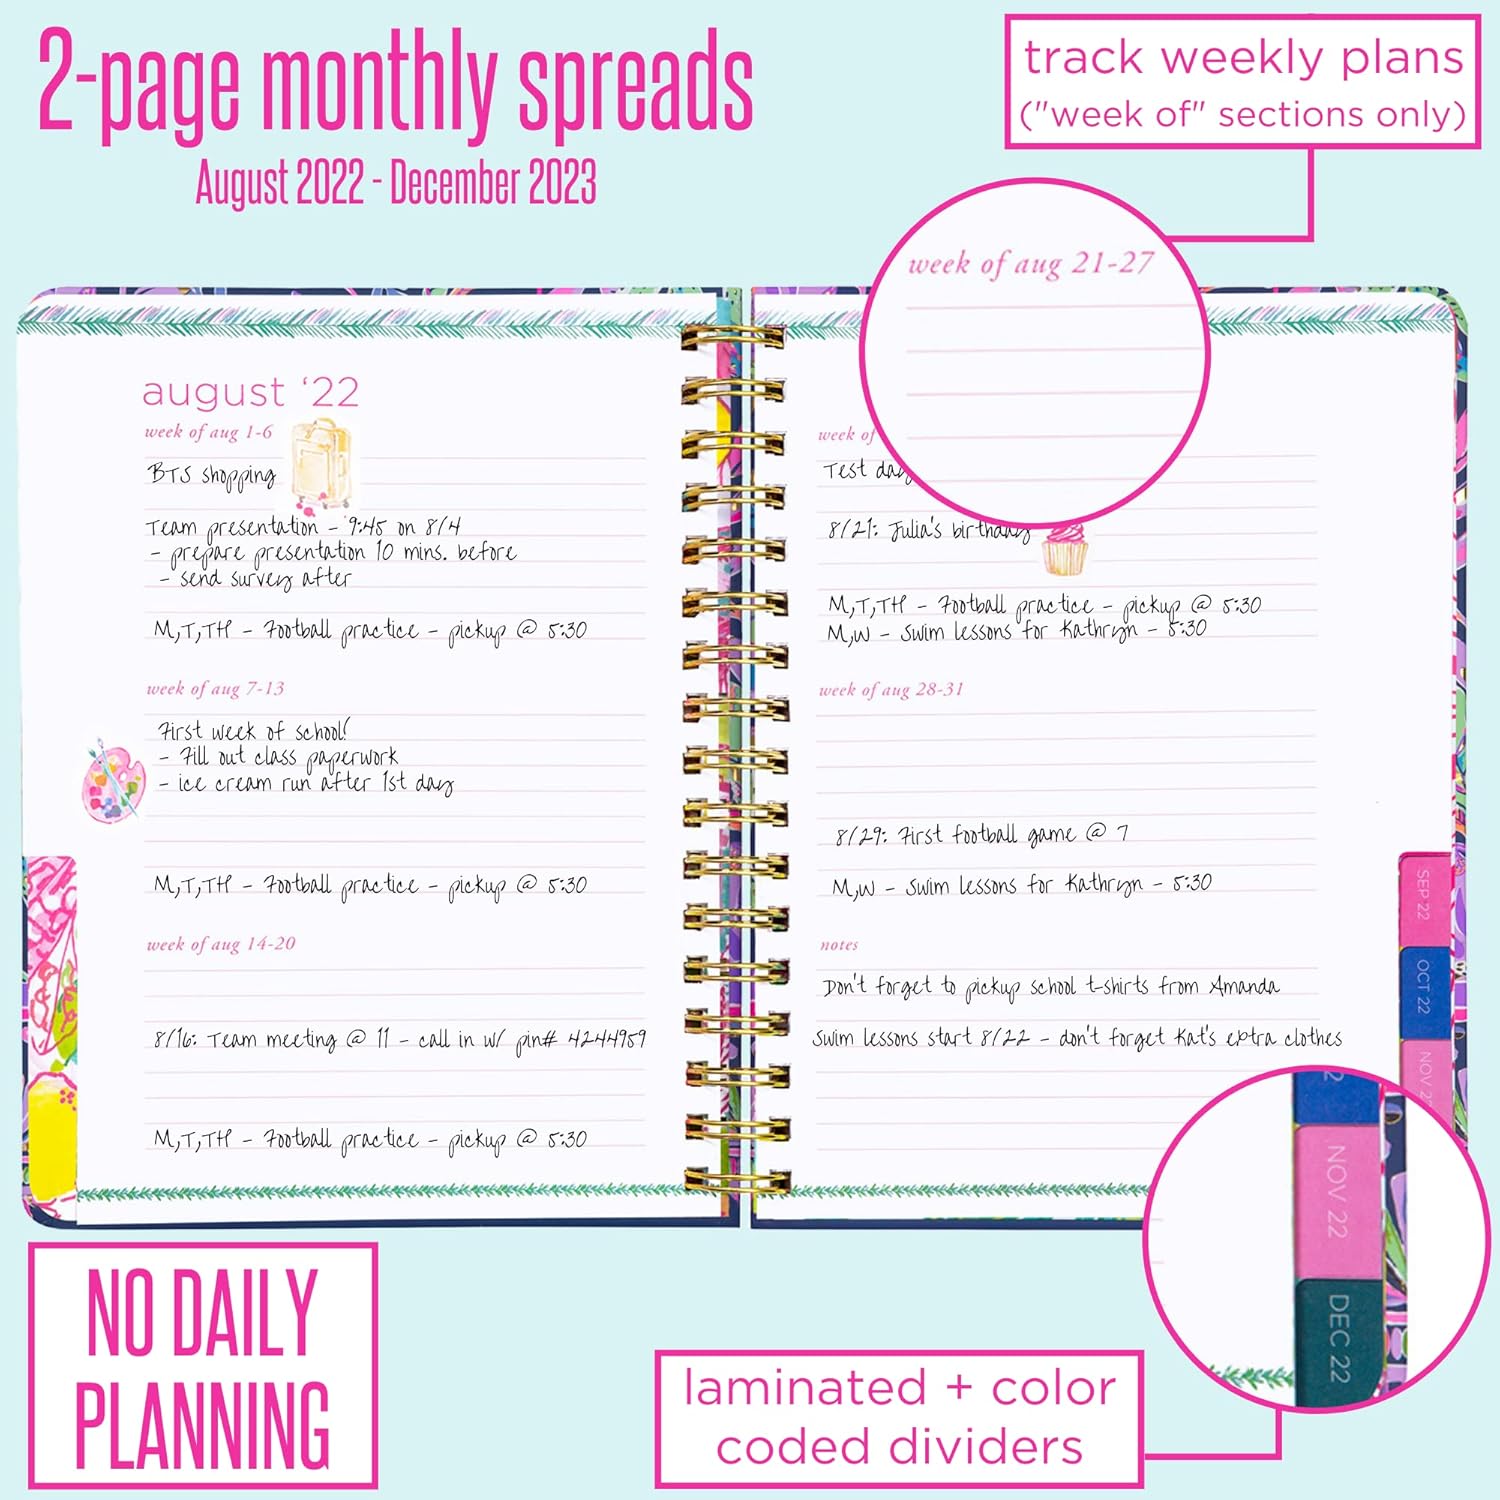 2-page monthly spreads
August 2022 - December 2023
track weekly plans
("week of" sections only)
week of aug 21-27
august '22
week of aug 1-6
BTS shopping
Team presentation - 9:45 on 8/4
- prepare presentation 10 mins. before
- send survey after
M,T,TH - Football practice - pickup @ 5:30
week of aug 7-13
First week of school!
- Fill out class paperwork
- ice cream run after 1st day
M,T,TH - Football practice - pickup @ 5:30
week of aug 14-20
8/16: Team meeting @ 11 - call in w/ pin# 4244959
M,T,TH - Football practice - pickup @ 5:30
week of
Test day
8/21: Julia's birthday
M,T,TH - Football practice - pickup @ 5:30
M,W - Swim lessons for Kathryn - 5:30
week of aug 28-31
8/29: First football game @ 7
M,W - Swim lessons for Kathryn - 5:30
notes
Don't forget to pickup school t-shirts from Amanda
Swim lessons start 8/22 - don't forget Kat's extra clothes
SEP 22
OCT 22
NOV 2
2
NOV 22
DEC 22
NO DAILY
PLANNING
laminated + color
coded dividers